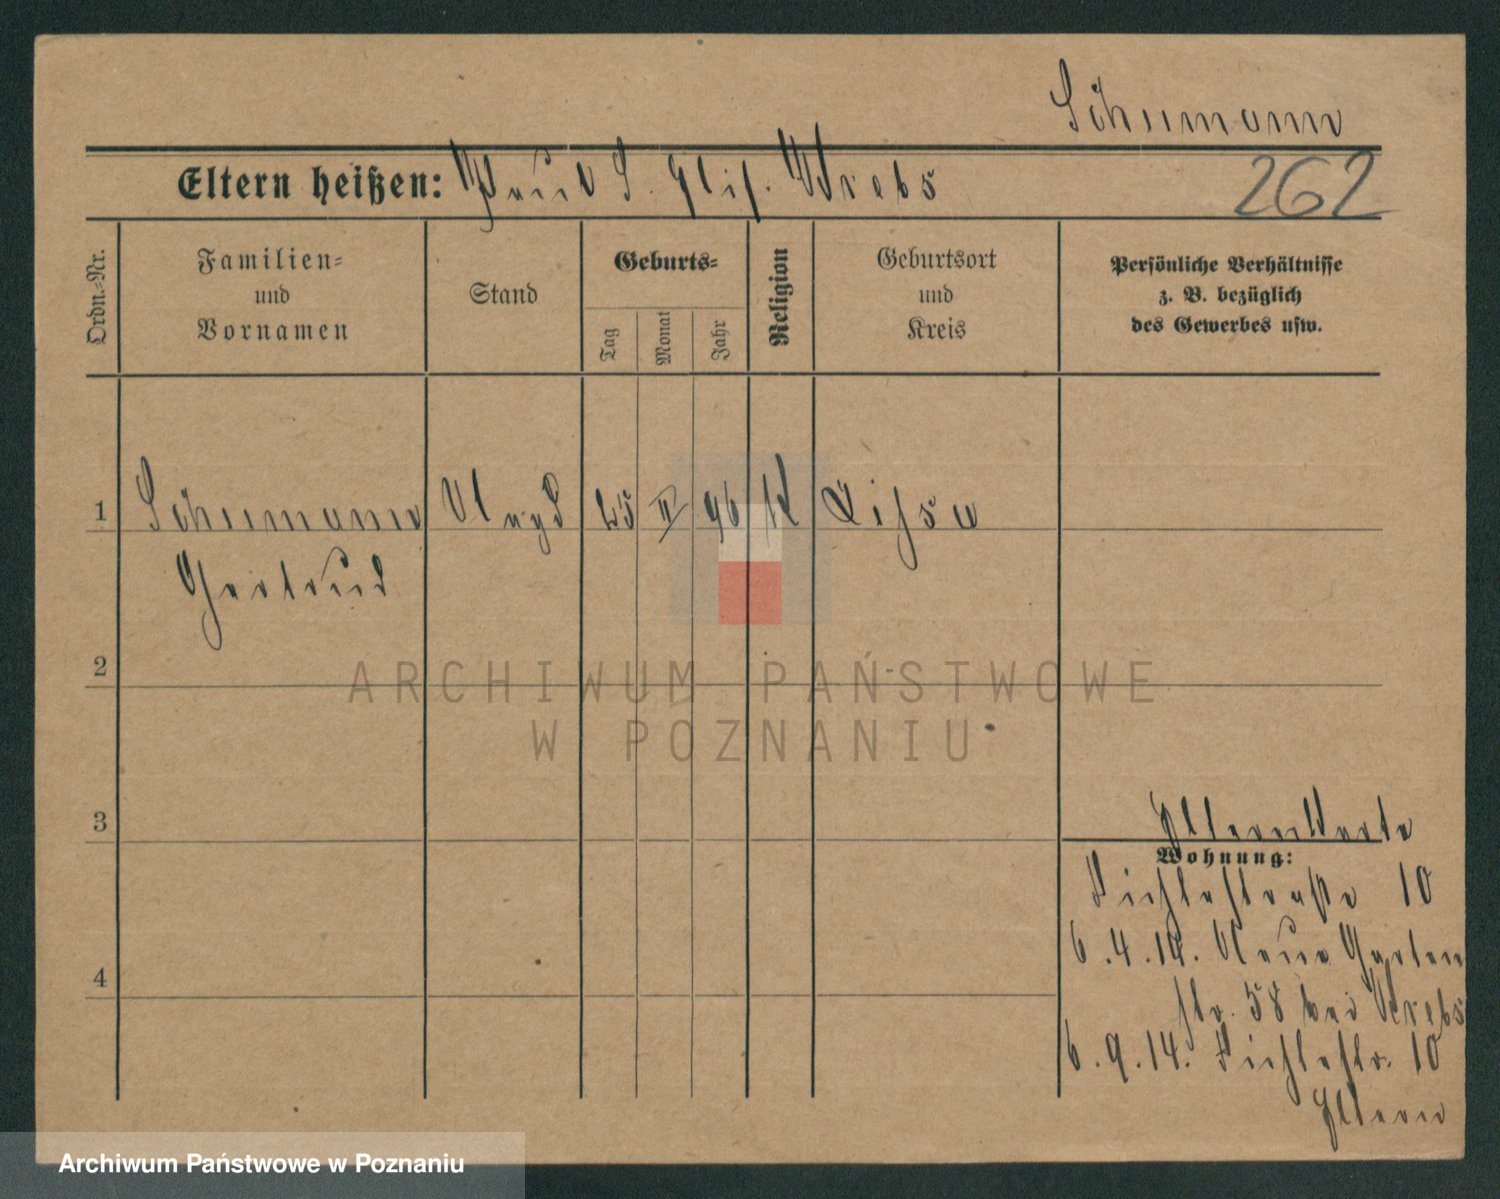 Schumann
Eltern heißen: Paul S. Elis. Krebs
262
Ordn.-Nr.
Familien-
und
Vornamen
Stand
Geburts-
Tag
Monat
Jahr
Religion
Geburtsort
und
Kreis
Persönliche Verhältnisse
z. B. bezüglich
des Gewerbes usw.
1 Schumann 25 II 96 K Lissa
Gertrud
2
ARCHIWUM PAŃSTWOWE
W POZNANIU
3
Elternkarte
Wohnung:
Fichtestraße 10
6.4.14. Neue Garten
str. 58 bei Krebs
6.9.14. Fichtestr. 10
4
Eltern
Archiwum Państwowe w Poznaniu